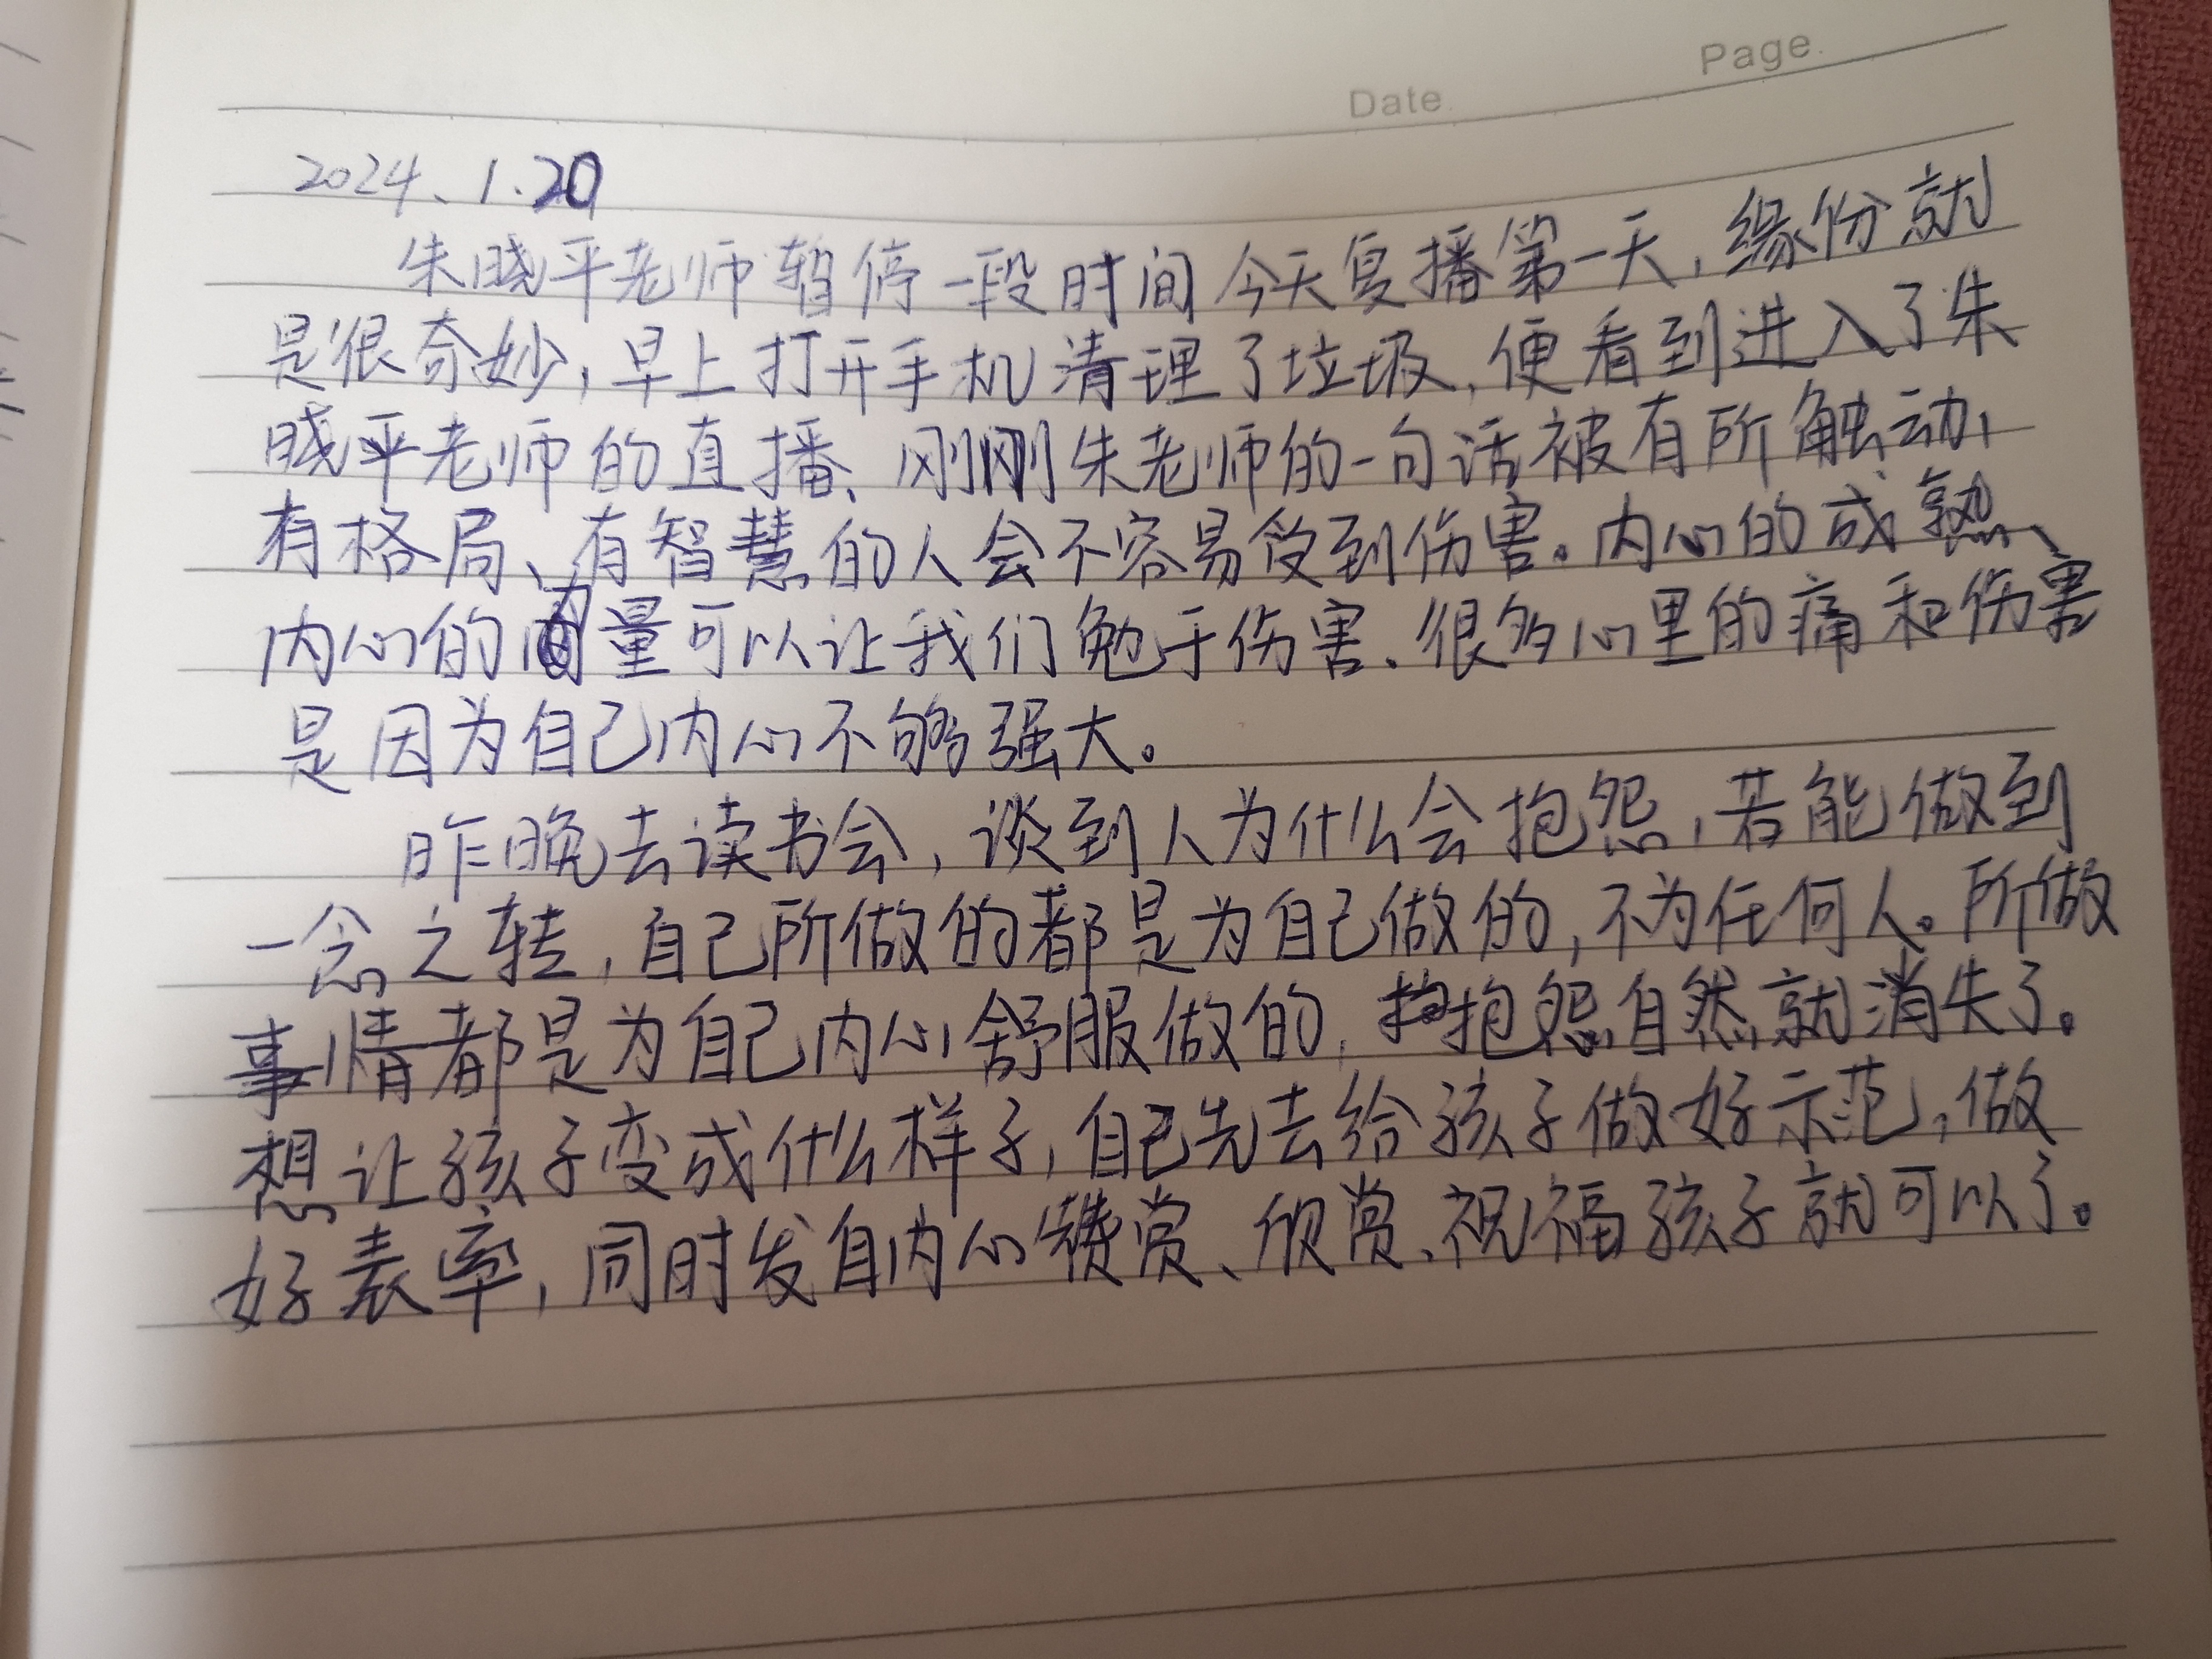 Page.
Date.
2024、1.20
朱晓平老师暂停一段时间今天复播第一天，缘份就
是很奇妙，早上打开手机清理了垃圾，便看到进入了朱
晓平老师的直播、刚刚朱老师的一句话被有所触动，
有格局、有智慧的人会不容易受到伤害。内心的成熟、
内心的力量可以让我们勉于伤害、很多心里的痛和伤害
是因为自己内心不够强大。
昨晚去读书会，谈到人为什么会抱怨，若能做到
一念之转，自己所做的都是为自己做的，不为任何人。所做
事情都是为自己内心舒服做的，抱怨自然就消失了。
想让孩子变成什么样子，自己先去给孩子做好示范，做
好表率，同时发自内心赞赏、欣赏、祝福孩子就可以了。